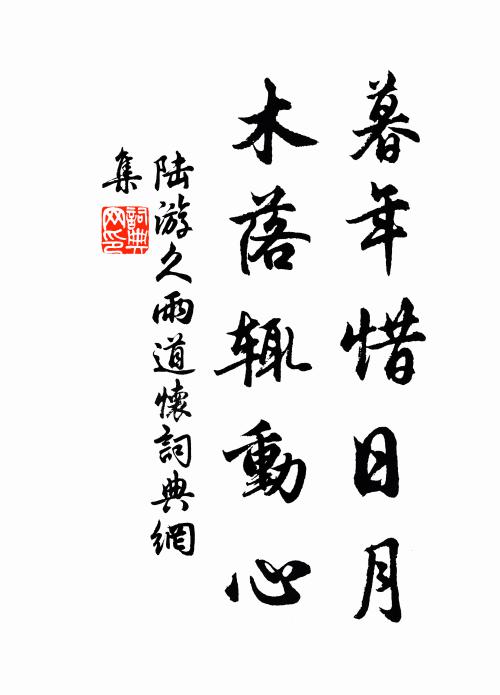 暮年惜日月
木落辄動心
陆游久雨道懷詞典網
集
詞典
网印